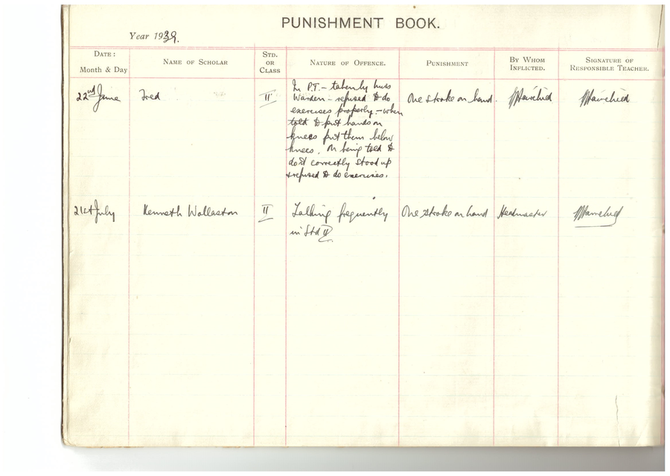 PUNISHMENT BOOK.
Year 1939.
DATE:
Month & Day
NAME OF SCHOLAR
STD.
OR
CLASS
NATURE OF OFFENCE.
PUNISHMENT
BY WHOM
INFLICTED.
SIGNATURE OF
RESPONSIBLE TEACHER.
22nd June
Fred
II
In P.T. – taken by Miss
Warden – refused to do
exercises properly – when
told to put hands on
knees put them below
knees. On being told to
do it correctly stood up
& refused to do exercises.
One stroke on hand.
21st July
Kenneth Wollaston
II
Talking frequently
in Std II
One stroke on hand
Headmaster